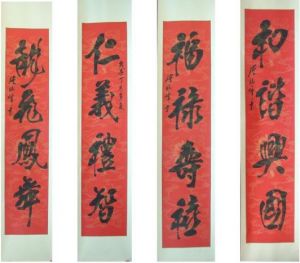 和諧興國
福祿壽禧
仁義禮智
龍飛鳳舞